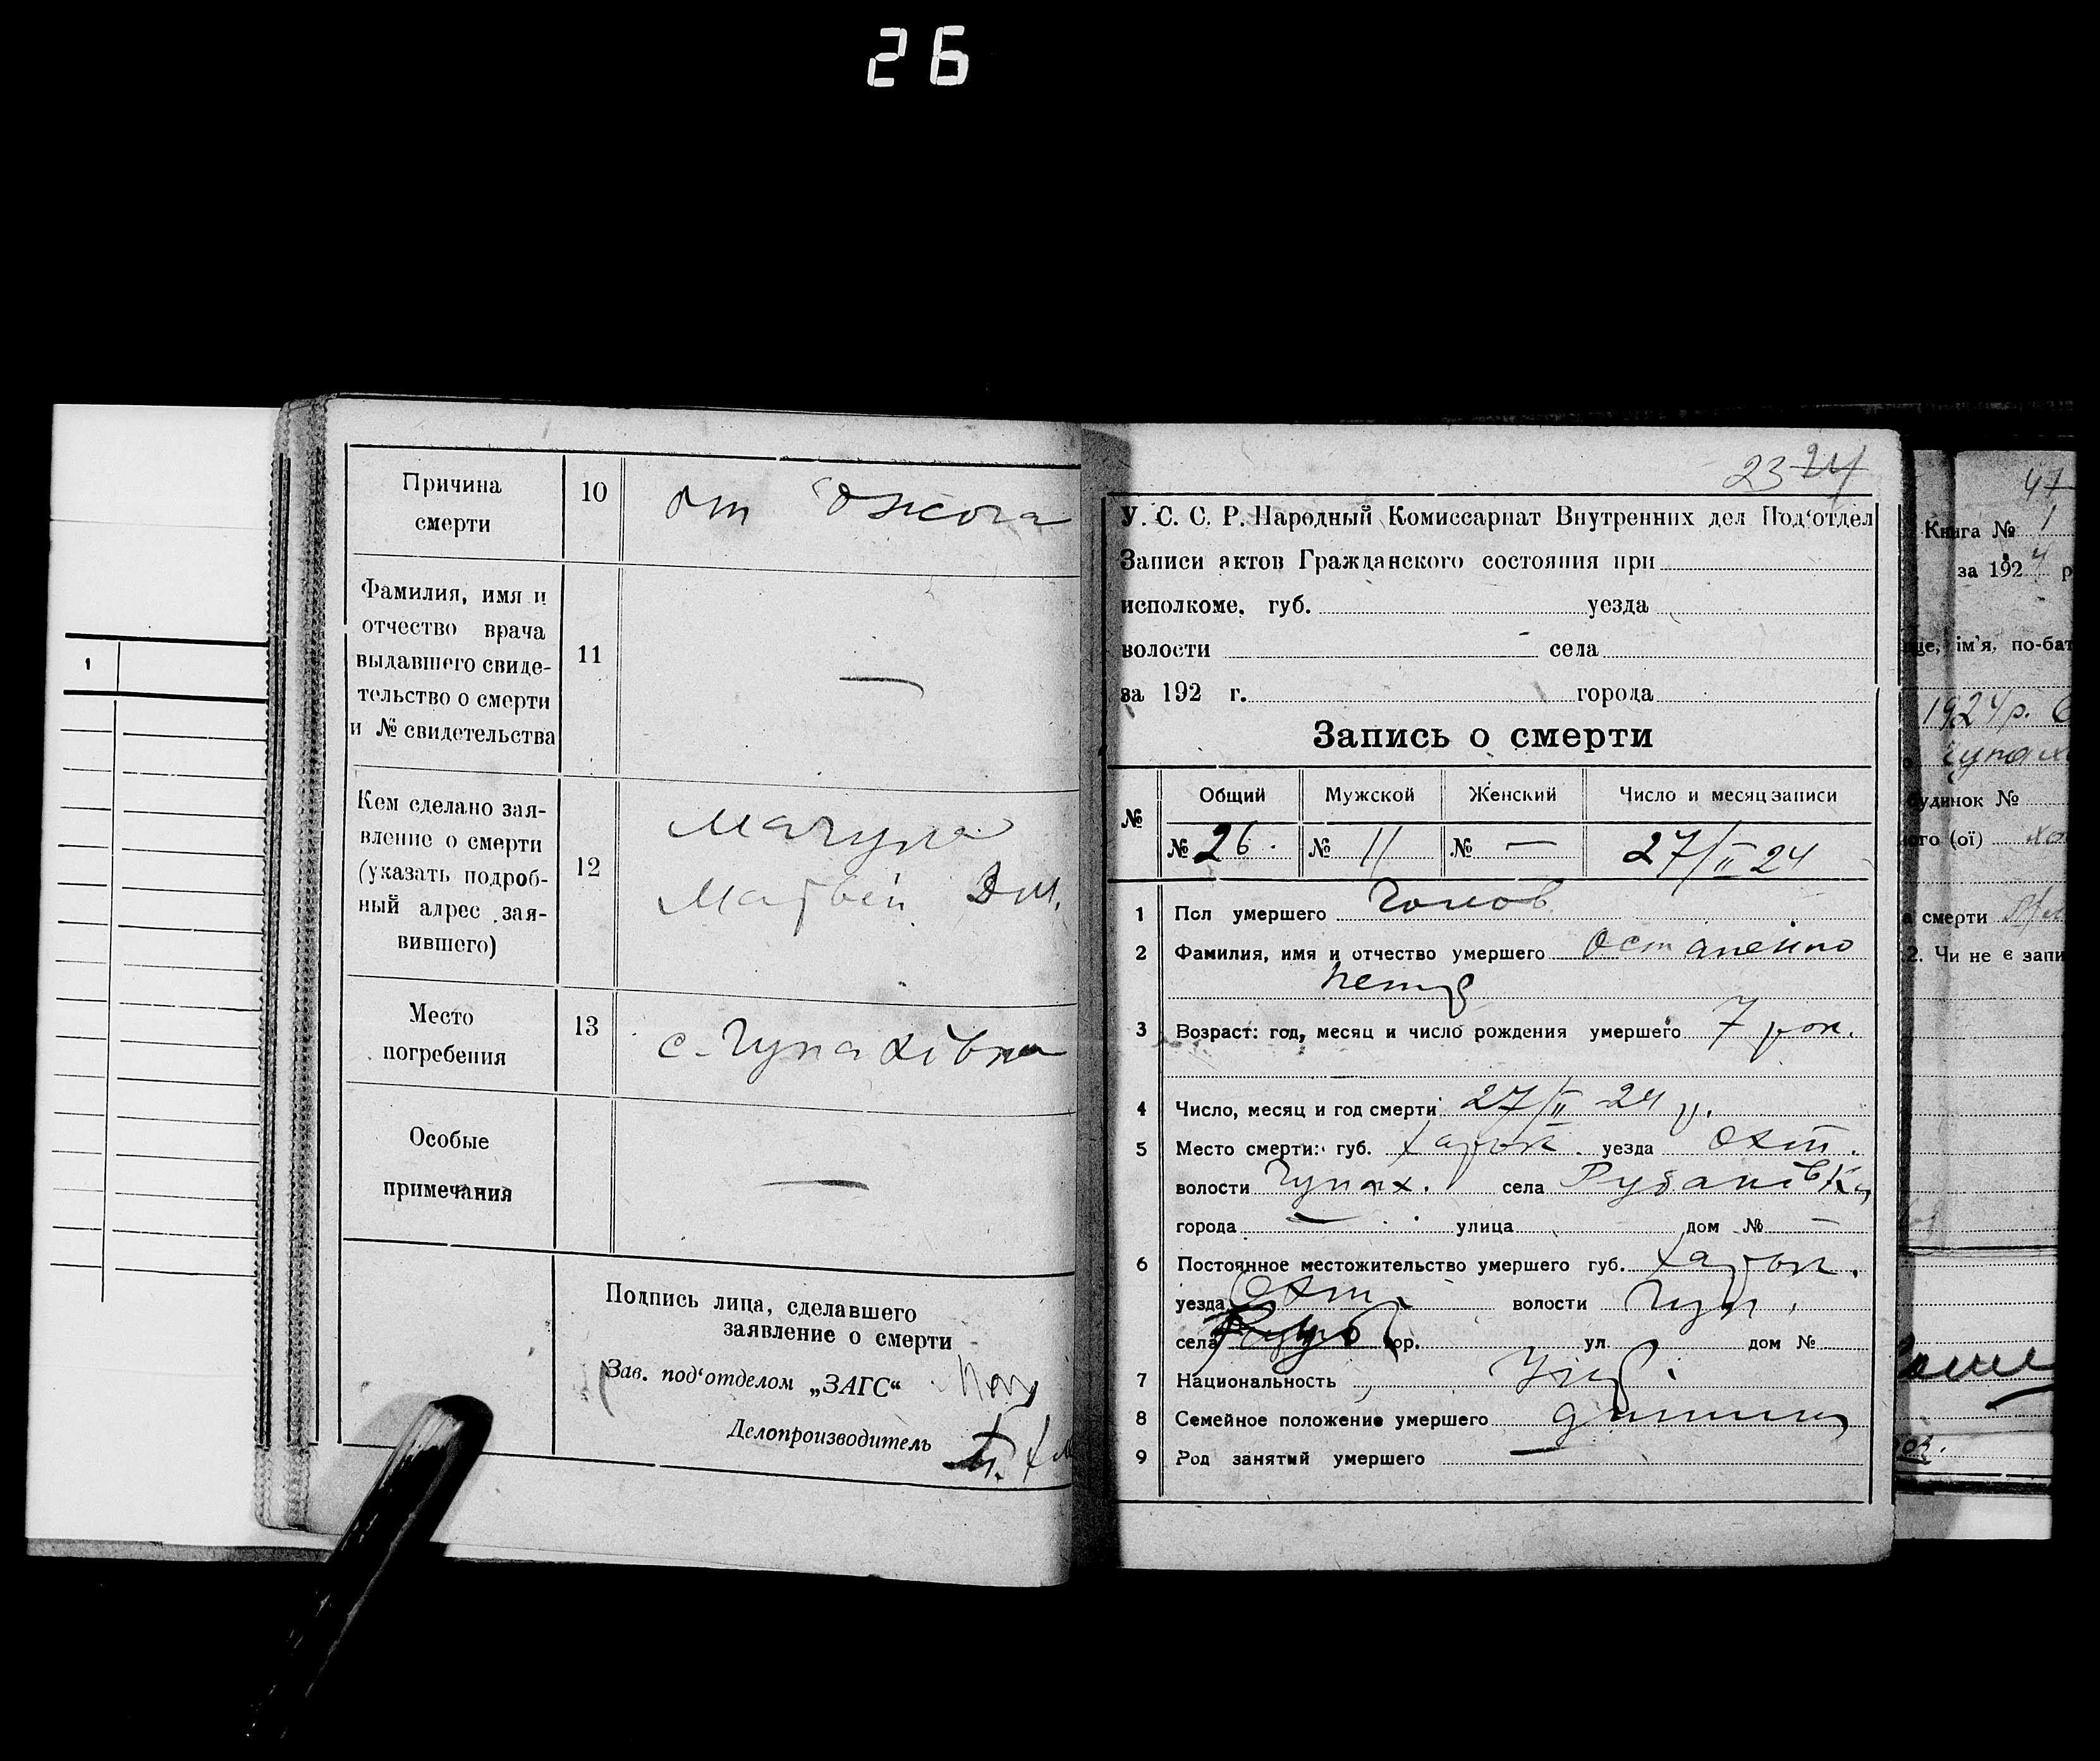 26
Причина
смерти
10
от ожога
Фамилия, имя и
отчество врача
выдавшего свиде-
тельство о смерти
и № свидетельства
11
—
Кем сделано зая-
вление о смерти
(указать подроб-
ный адрес зая-
вившего)
12
Мачула
Матвей Дм.
Место
погребения
13
с. Чупахівка
Особые
примечания
—
Подпись лица, сделавшего
заявление о смерти
Зав. под‘отделом „ЗАГС“
Делопроизводитель
1
23 24
У. С. С. Р. Народный Комиссариат Внутренних дел Под‘отдел
Записи актов Гражданского состояния при
исполкоме, губ. уезда
волости села
за 192 г. города
Запись о смерти
№ Общий Мужской Женский Число и месяц записи
№ 26. № 11 № — 27/II 24
1 Пол умершего чолов
2 Фамилия, имя и отчество умершего Остапенко
Петр
3 Возраст: год, месяц и число рождения умершего 7 рок.
4 Число, месяц и год смерти 27/II 24 р.
5 Место смерти: губ. Харьк. уезда Охт.
волости Чупах. села Рубанівка
города — улица дом № —
6 Постоянное местожительство умершего губ. Харьк.
уезда Охт. волости Чуп.
села гор. ул. дом №
7 Национальность Укр.
8 Семейное положение умершего дитина
9 Род занятий умершего —
47
Книга № 1
за 1924 р
ще, ім’я, по-бат
1924 р.
чупах
будинок №
ного (ої)
а смерти
2. Чи не є запи